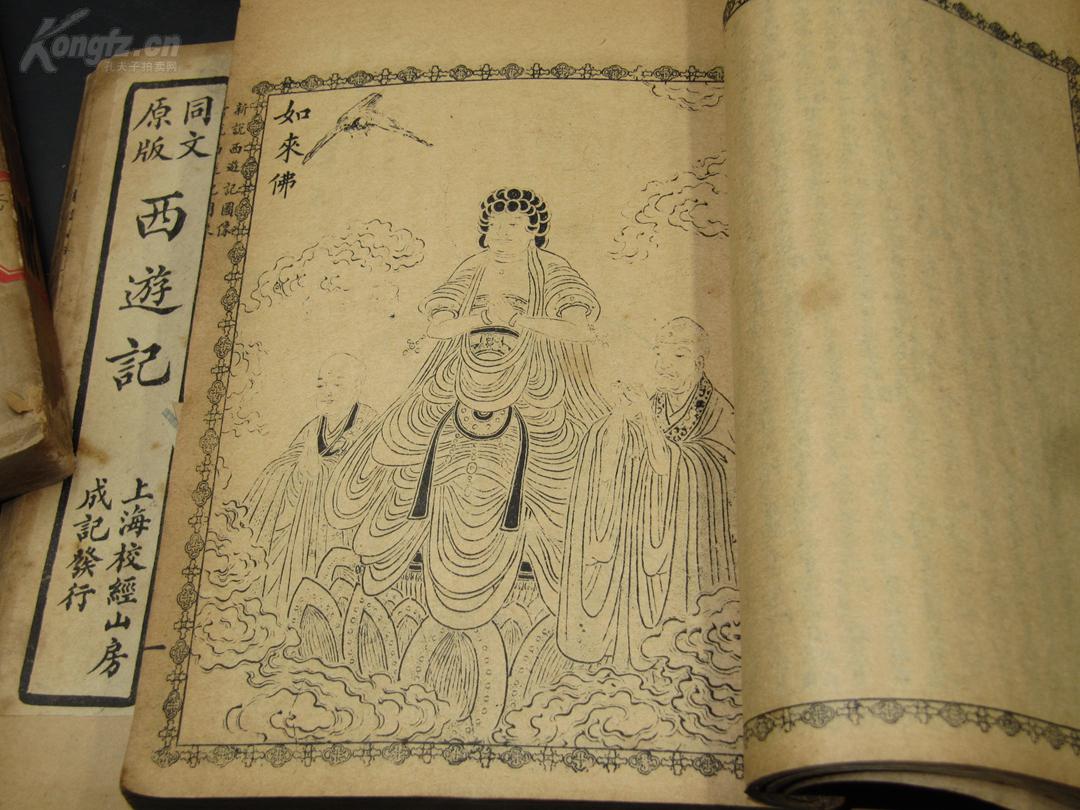 Kongfz.cn
孔夫子拍卖网
同文
原版
西遊記
上海校經山房
成記發行
一
新說西遊記圖像
如來佛